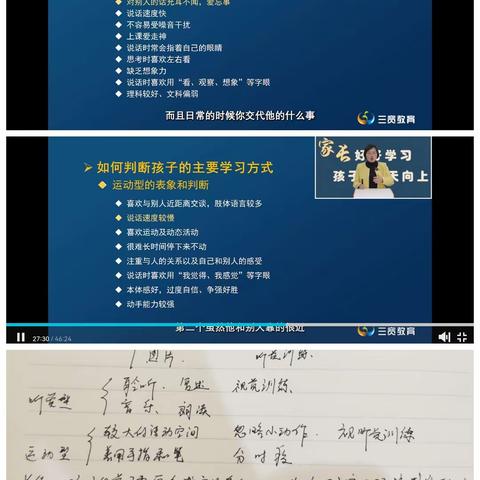 对别人的话充耳不闻，爱忘事
说话速度快
不容易受噪音干扰
上课爱走神
说话时常会指着自己的眼睛
思考时喜欢左右看
缺乏想象力
说话时喜欢用“看、观察、想象”等字眼
理科较好、文科偏弱
而且日常的时候你交代他的什么事
三宽教育
如何判断孩子的主要学习方式
运动型的表象和判断
喜欢与别人近距离交谈，肢体语言较多
说话速度较慢
喜欢运动及动态活动
很难长时间停下来不动
注重与人的关系以及自己和别人的感受
说话时喜欢用“我觉得、我感觉”等字眼
本体感好，过度自信、争强好胜
动手能力较强
家长好好学习
孩子天天向上
第二个虽然他和别人靠的很近
27:30/46:24
三宽教育
图片 听觉训练.
听觉型 聆听. 复述 视觉训练.
音乐. 朗读
运动型 较大的活动空间 忽略小动作. 视听觉训练
善用手指和笔 分时段